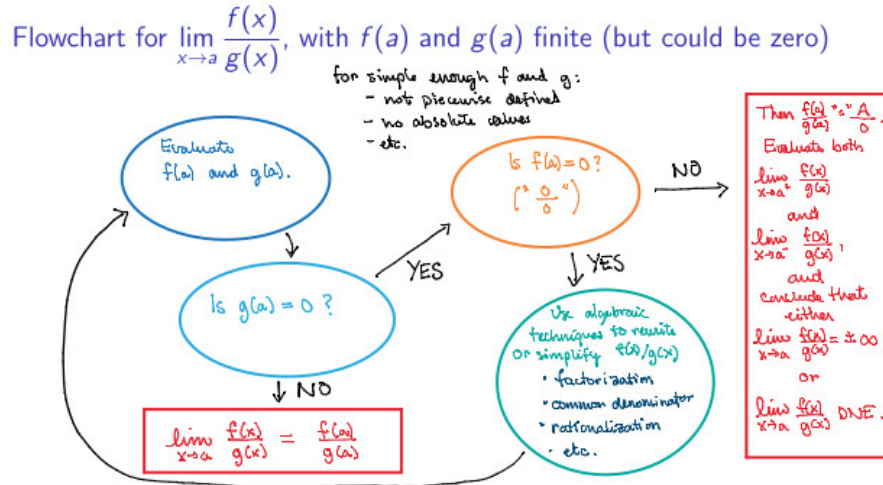 Flowchart for lim x→a f(x)/g(x), with f(a) and g(a) finite (but could be zero)
for simple enough f and g:
- not piecewise defined
- no absolute values
- etc.
Evaluate
f(a) and g(a).
Is g(a) = 0 ?
YES
NO
lim x→a f(x)/g(x) = f(a)/g(a)
Is f(a) = 0 ?
(" 0/0 ")
NO
YES
Use algebraic
techniques to rewrite
or simplify f(x)/g(x)
• factorization
• common denominator
• rationalization
- etc.
Then f(a)/g(a) "=" A/0.
Evaluate both
lim x→a⁺ f(x)/g(x)
and
lim x→a⁻ f(x)/g(x),
and
conclude that
either
lim x→a f(x)/g(x) = ±∞
or
lim x→a f(x)/g(x) DNE.